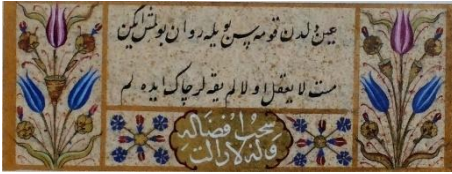 عین دلدن قومه پس بویله روان بولمش ایکن
مست لا یعقل اولالم یقه لر چاک ایده لم
سحب افضاله
وله لا زالت